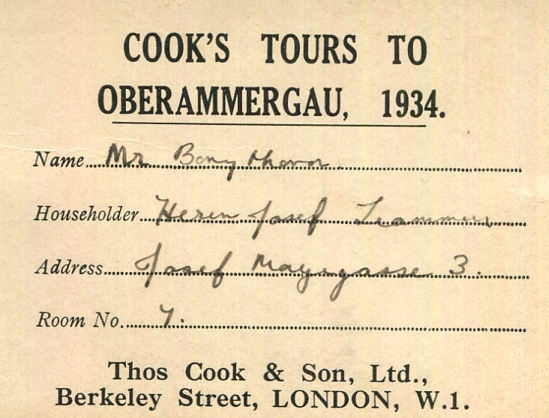 COOK'S TOURS TO
OBERAMMERGAU, 1934.
Name Mr
Householder Herrn Josef
Address Josef Maysgasse 3.
Room No. 7.
Thos Cook & Son, Ltd.,
Berkeley Street, LONDON, W.1.